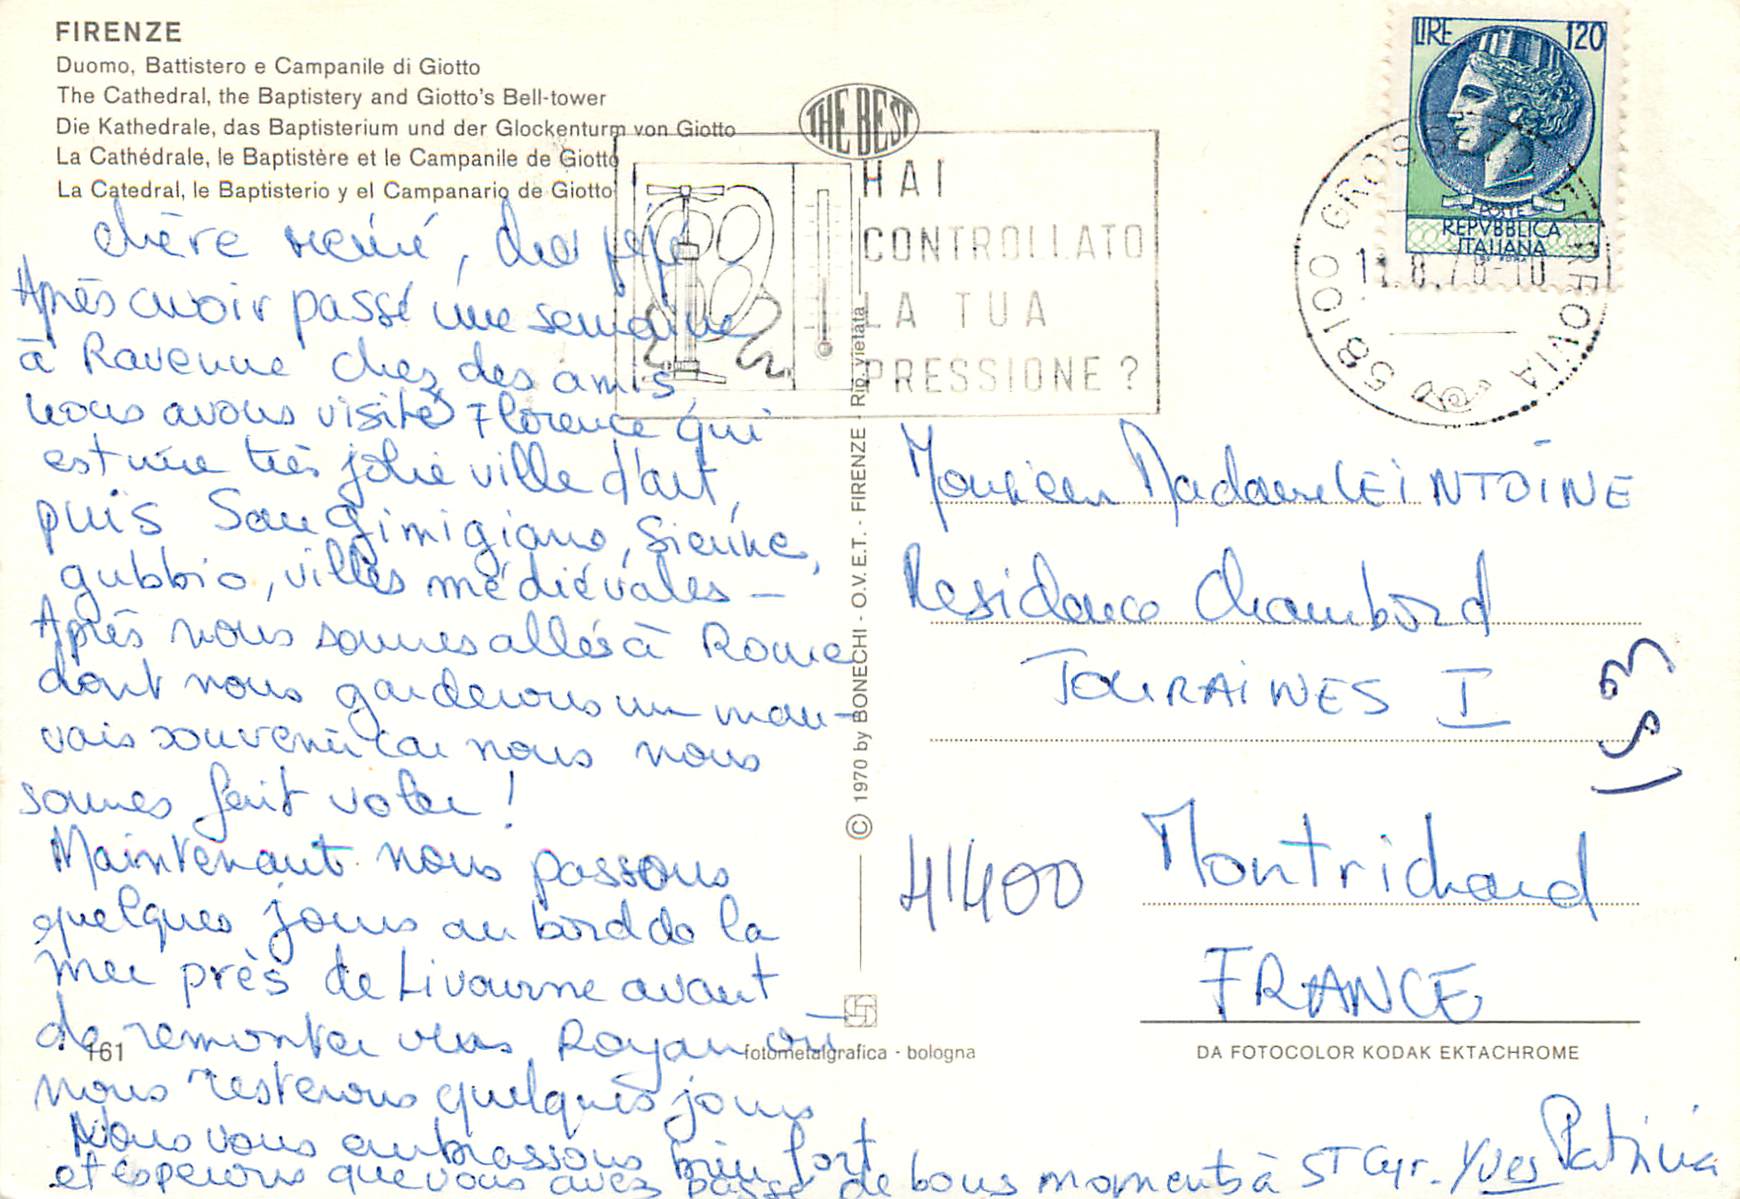 FIRENZE
Duomo, Battistero e Campanile di Giotto
The Cathedral, the Baptistery and Giotto's Bell-tower
Die Kathedrale, das Baptisterium und der Glockenturm von Giotto
La Cathédrale, le Baptistère et le Campanile de Giotto
La Catedral, le Baptisterio y el Campanario de Giotto
chère mémé, cher pépé
Après avoir passé une semaine
à Ravenne chez des amis,
nous avons visité Florence qui
est une très jolie ville d'art,
puis San Gimigiano, Sienne,
gubbio, villes médiévales -
Après nous sommes allés à Rome
dont nous garderons un mau-
vais souvenir car nous nous
sommes fait voler !
Maintenant nous passons
quelques jours au bord de la
mer près de Livourne avant
de remonter vers Royan où
nous resterons quelques jours
Nous vous embrassons bien fort
et espérons que vous avez passé de bons moments à ST Cyr. Yves Patricia
161
THE BEST
HAI
CONTROLLATO
LA TUA
PRESSIONE?
LIRE 120
POSTE
REPVBBLICA
ITALIANA
58100 GROSSETO FERROVIA
© 1970 by BONECHI - O.V.E.T. - FIRENZE - Rip. vietata
Monsieur Madame LEINTOINE
Residence Chambord
TOURAINES I
153
41400 Montrichard
FRANCE
fotometalgrafica - bologna
DA FOTOCOLOR KODAK EKTACHROME